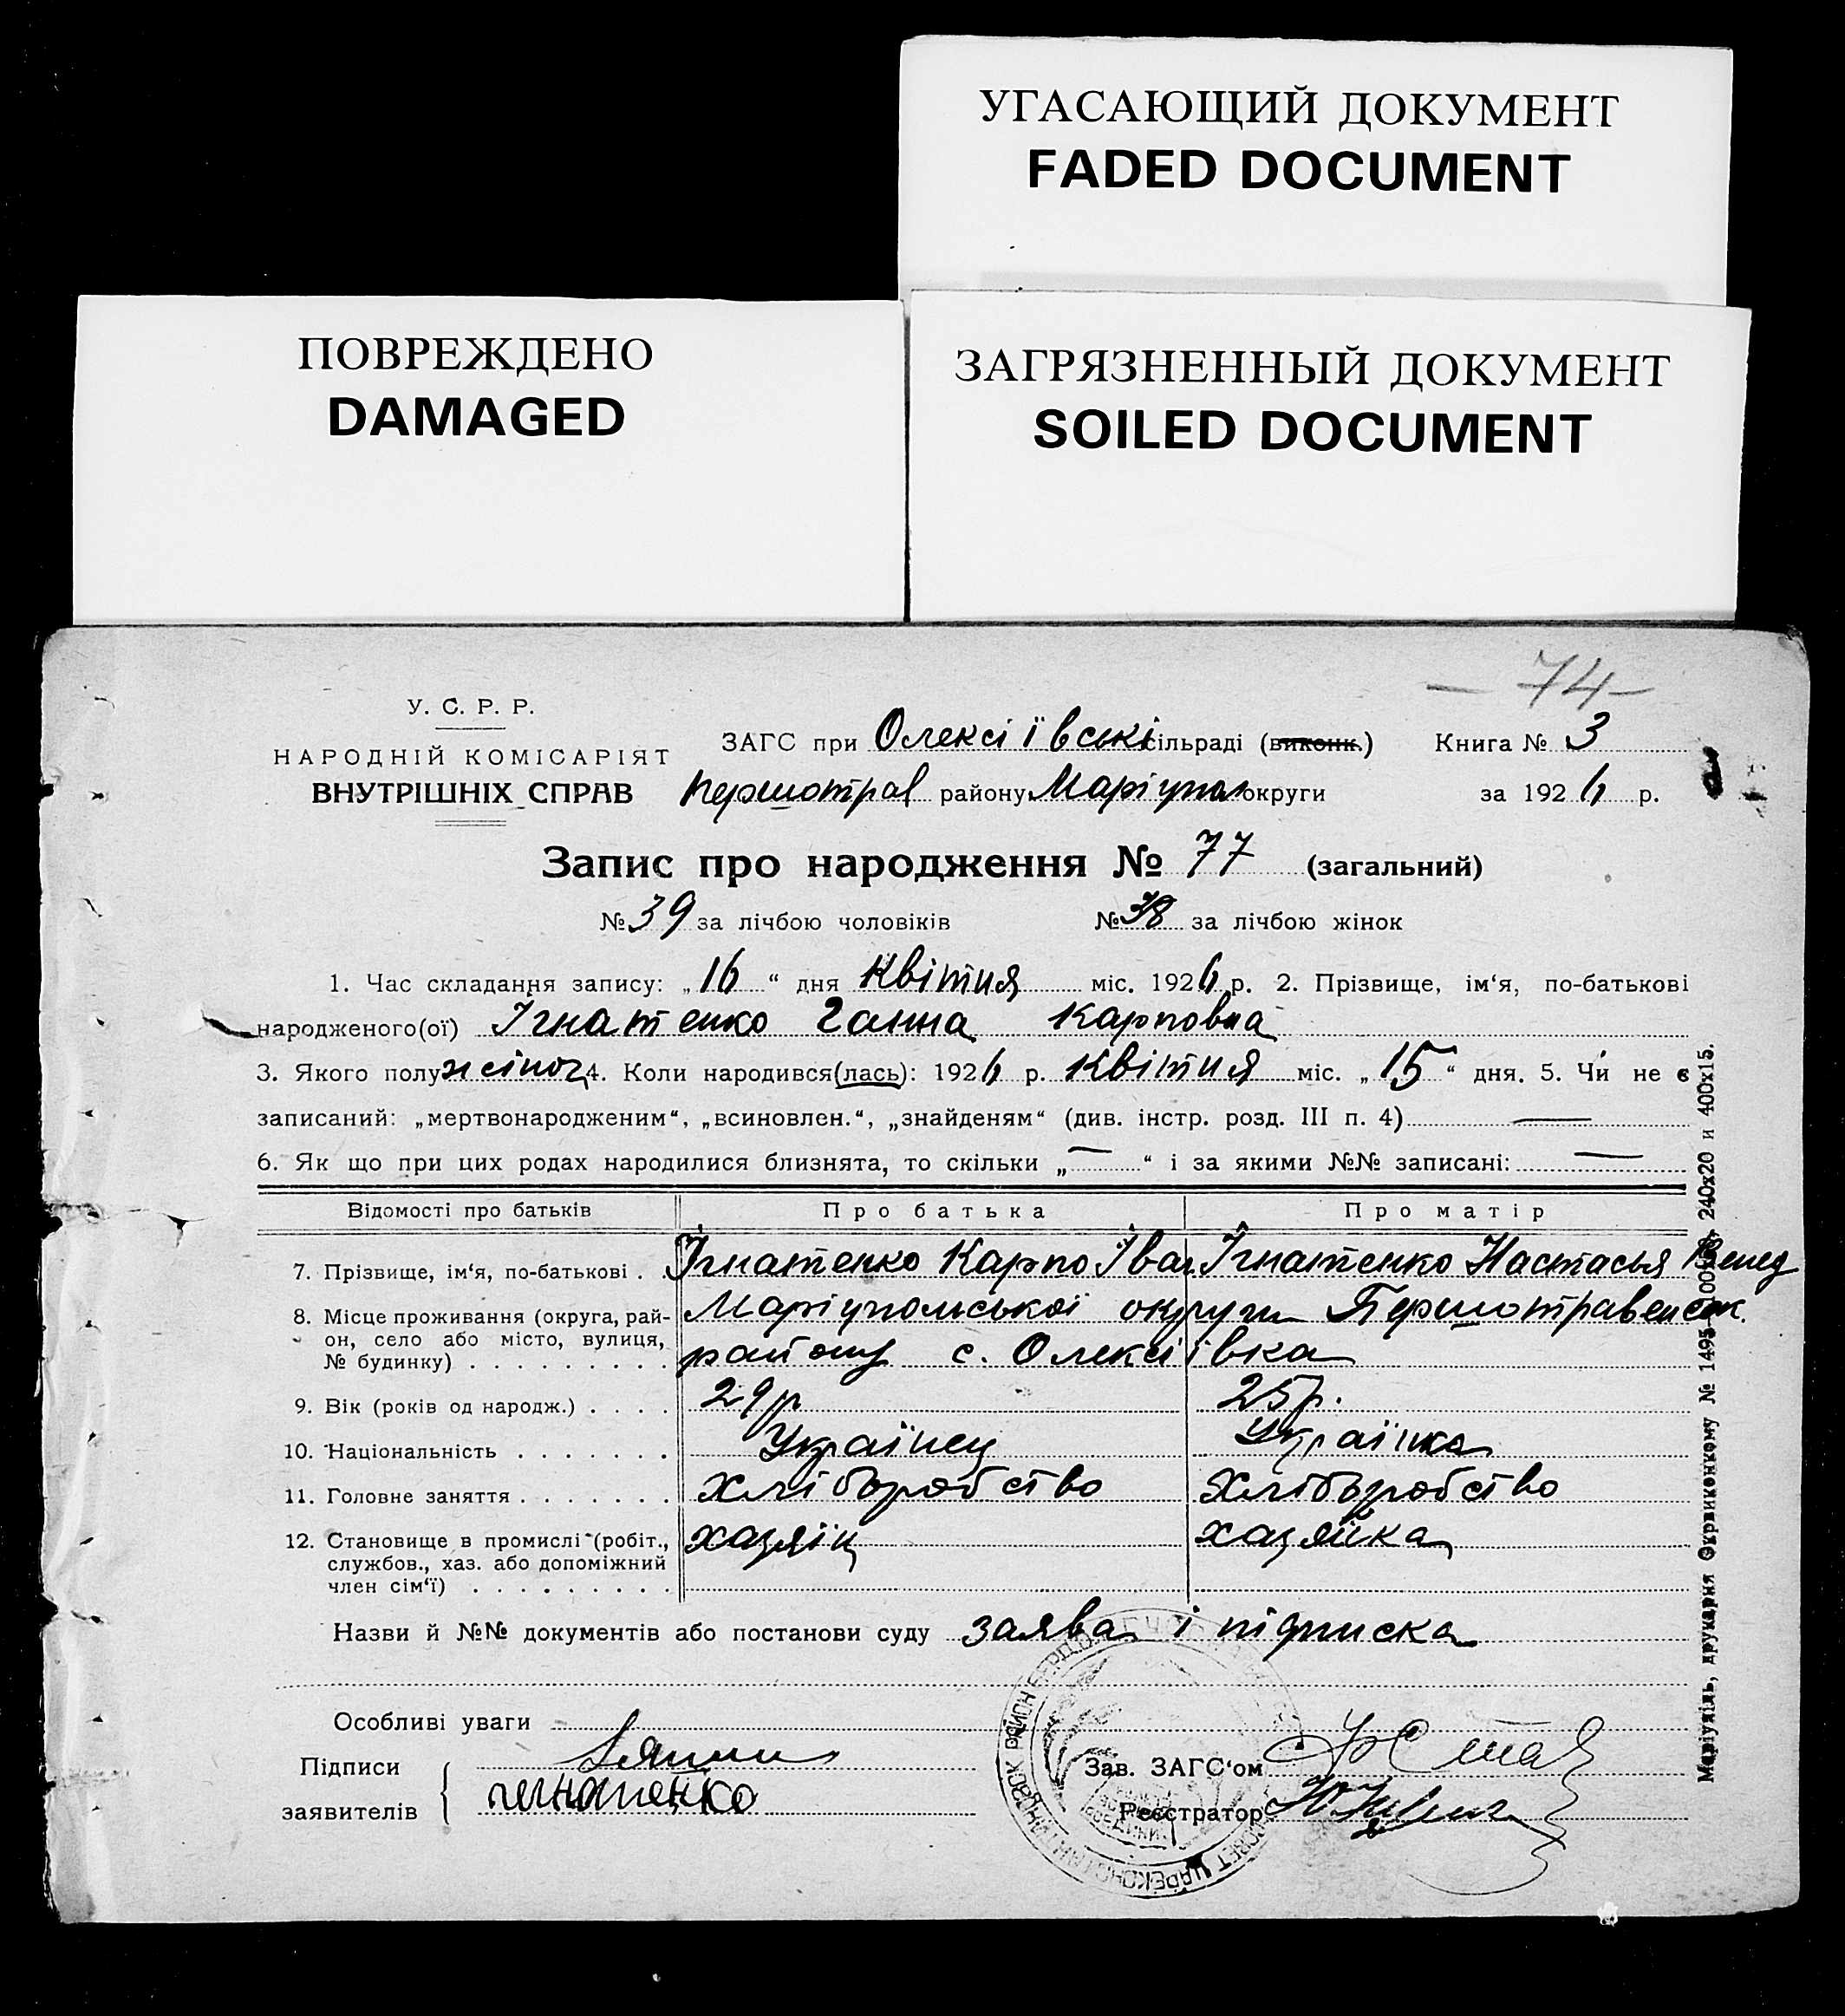 УГАСАЮЩИЙ ДОКУМЕНТ
FADED DOCUMENT
ПОВРЕЖДЕНО
DAMAGED
ЗАГРЯЗНЕННЫЙ ДОКУМЕНТ
SOILED DOCUMENT
— 74 —
У. С. Р. Р.
НАРОДНІЙ КОМІСАРІЯТ
ВНУТРІШНІХ СПРАВ
ЗАГС при Олексіївські сільраді (виконк.) Книга № 3
Першотрав району Маріупол округи за 1926 р.
Запис про народження № 77 (загальний)
№ 39 за лічбою чоловіків № 38 за лічбою жінок
1. Час складання запису: „16“ дня Квітня міс. 1926 р. 2. Прізвище, ім‘я, по-батькові
народженого(ої) Ігнатенко Ганна Карповна
3. Якого полу жіноч 4. Коли народився(лась): 1926 р. Квітня міс. „15“ дня. 5. Чи не є
записаний: „мертвонародженим“, „всиновлен.“, „знайденям“ (див. інстр. розд. III п. 4) —
6. Як що при цих родах народилися близнята, то скільки „—“ і за якими №№ записані: —
Відомості про батьків Про батька Про матір
7. Прізвище, ім‘я, по-батькові . . Ігнатенко Карпо Іван Ігнатенко Настасья
8. Місце проживання (округа, рай- Маріупольської округи Першотравенськ.
он, село або місто, вулиця,
№ будинку) . . . . . . . . . району с. Олексіївка
9. Вік (років од народж.) . . . . 29 р 25 р.
10. Національність . . . . . . . Українец Українка
11. Головне заняття . . . . . . . хліборобство хліборобство
12. Становище в промислі (робіт., хазяїн хазяйка
службов., хаз. або допоміжний
член сім‘ї) . . . . . . . . .
Назви й №№ документів або постанови суду заява і підписка
Особливі уваги
Підписи
заявителів
Зав. ЗАГС‘ом
Реєстратор
Маріупіль, друкарня Окрвиконкому № 1495 240х20 и 400х15.